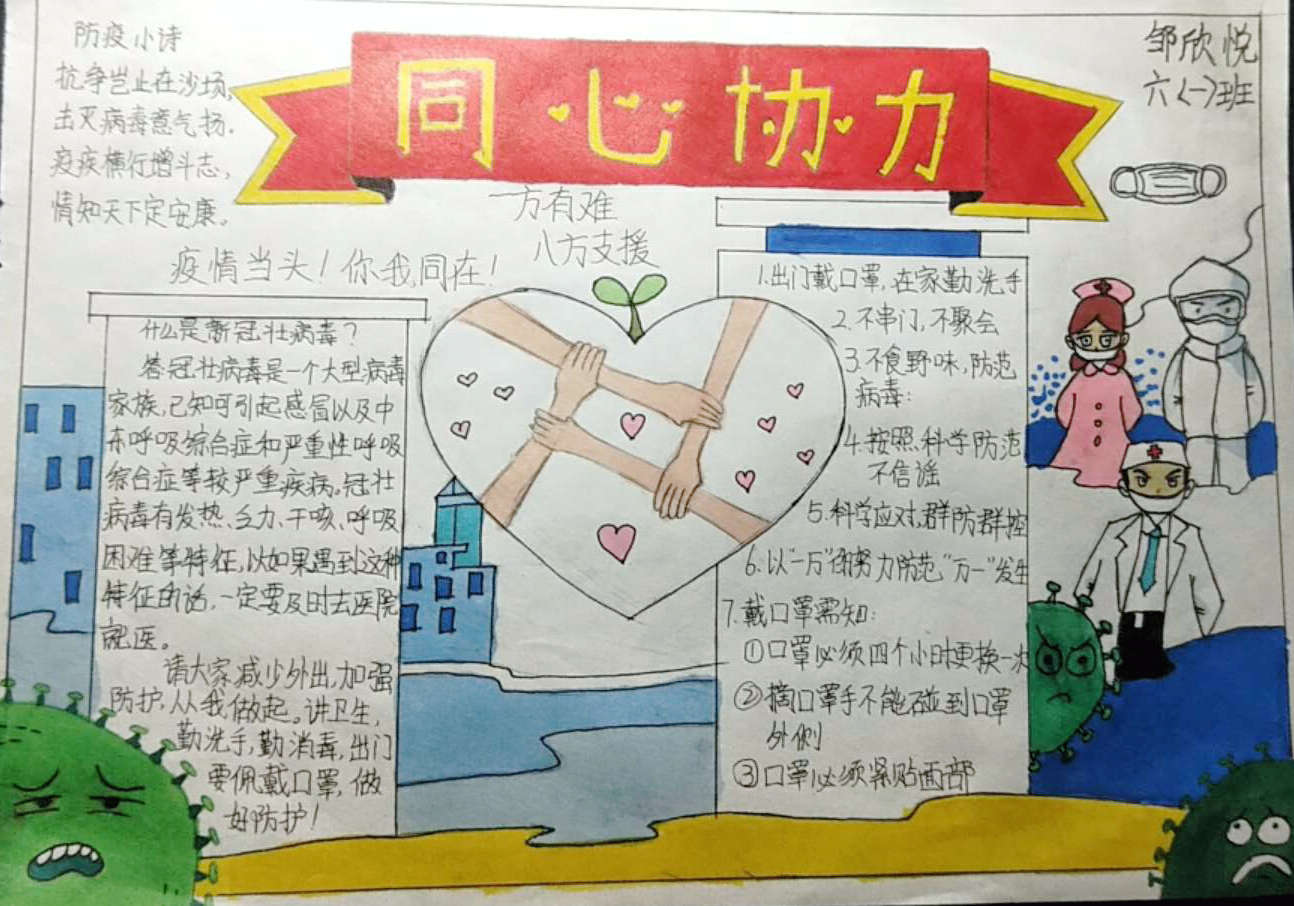 防疫小诗
抗争岂止在沙场,
击灭病毒意气扬.
疫疾横行增斗志,
情知天下定安康。
同心协力
邹欣悦
六(一)班
一方有难
八方支援
疫情当头!你我同在!
什么是新冠壮病毒?
答冠壮病毒是一个大型病毒
家族,已知可引起感冒以及中
东呼吸综合症和严重性呼吸
综合症等较严重疾病。冠壮
病毒有发热、乏力、干咳、呼吸
困难等特征,以如果遇到这种
特征的话,一定要及时去医院
就医。
请大家减少外出,加强
防护,从我做起。讲卫生,
勤洗手,勤消毒,出门
要佩戴口罩,做
好防护!
1.出门戴口罩,在家勤洗手
2.不串门,不聚会
3.不食野味,防范
病毒:
4.按照科学防范
不信谣
5.科学应对,群防群控
6.以“一万”的努力防范“万一”发生
7.戴口罩需知:
①口罩必须四个小时更换一次
②摘口罩手不能碰到口罩
外侧
③口罩必须紧贴面部